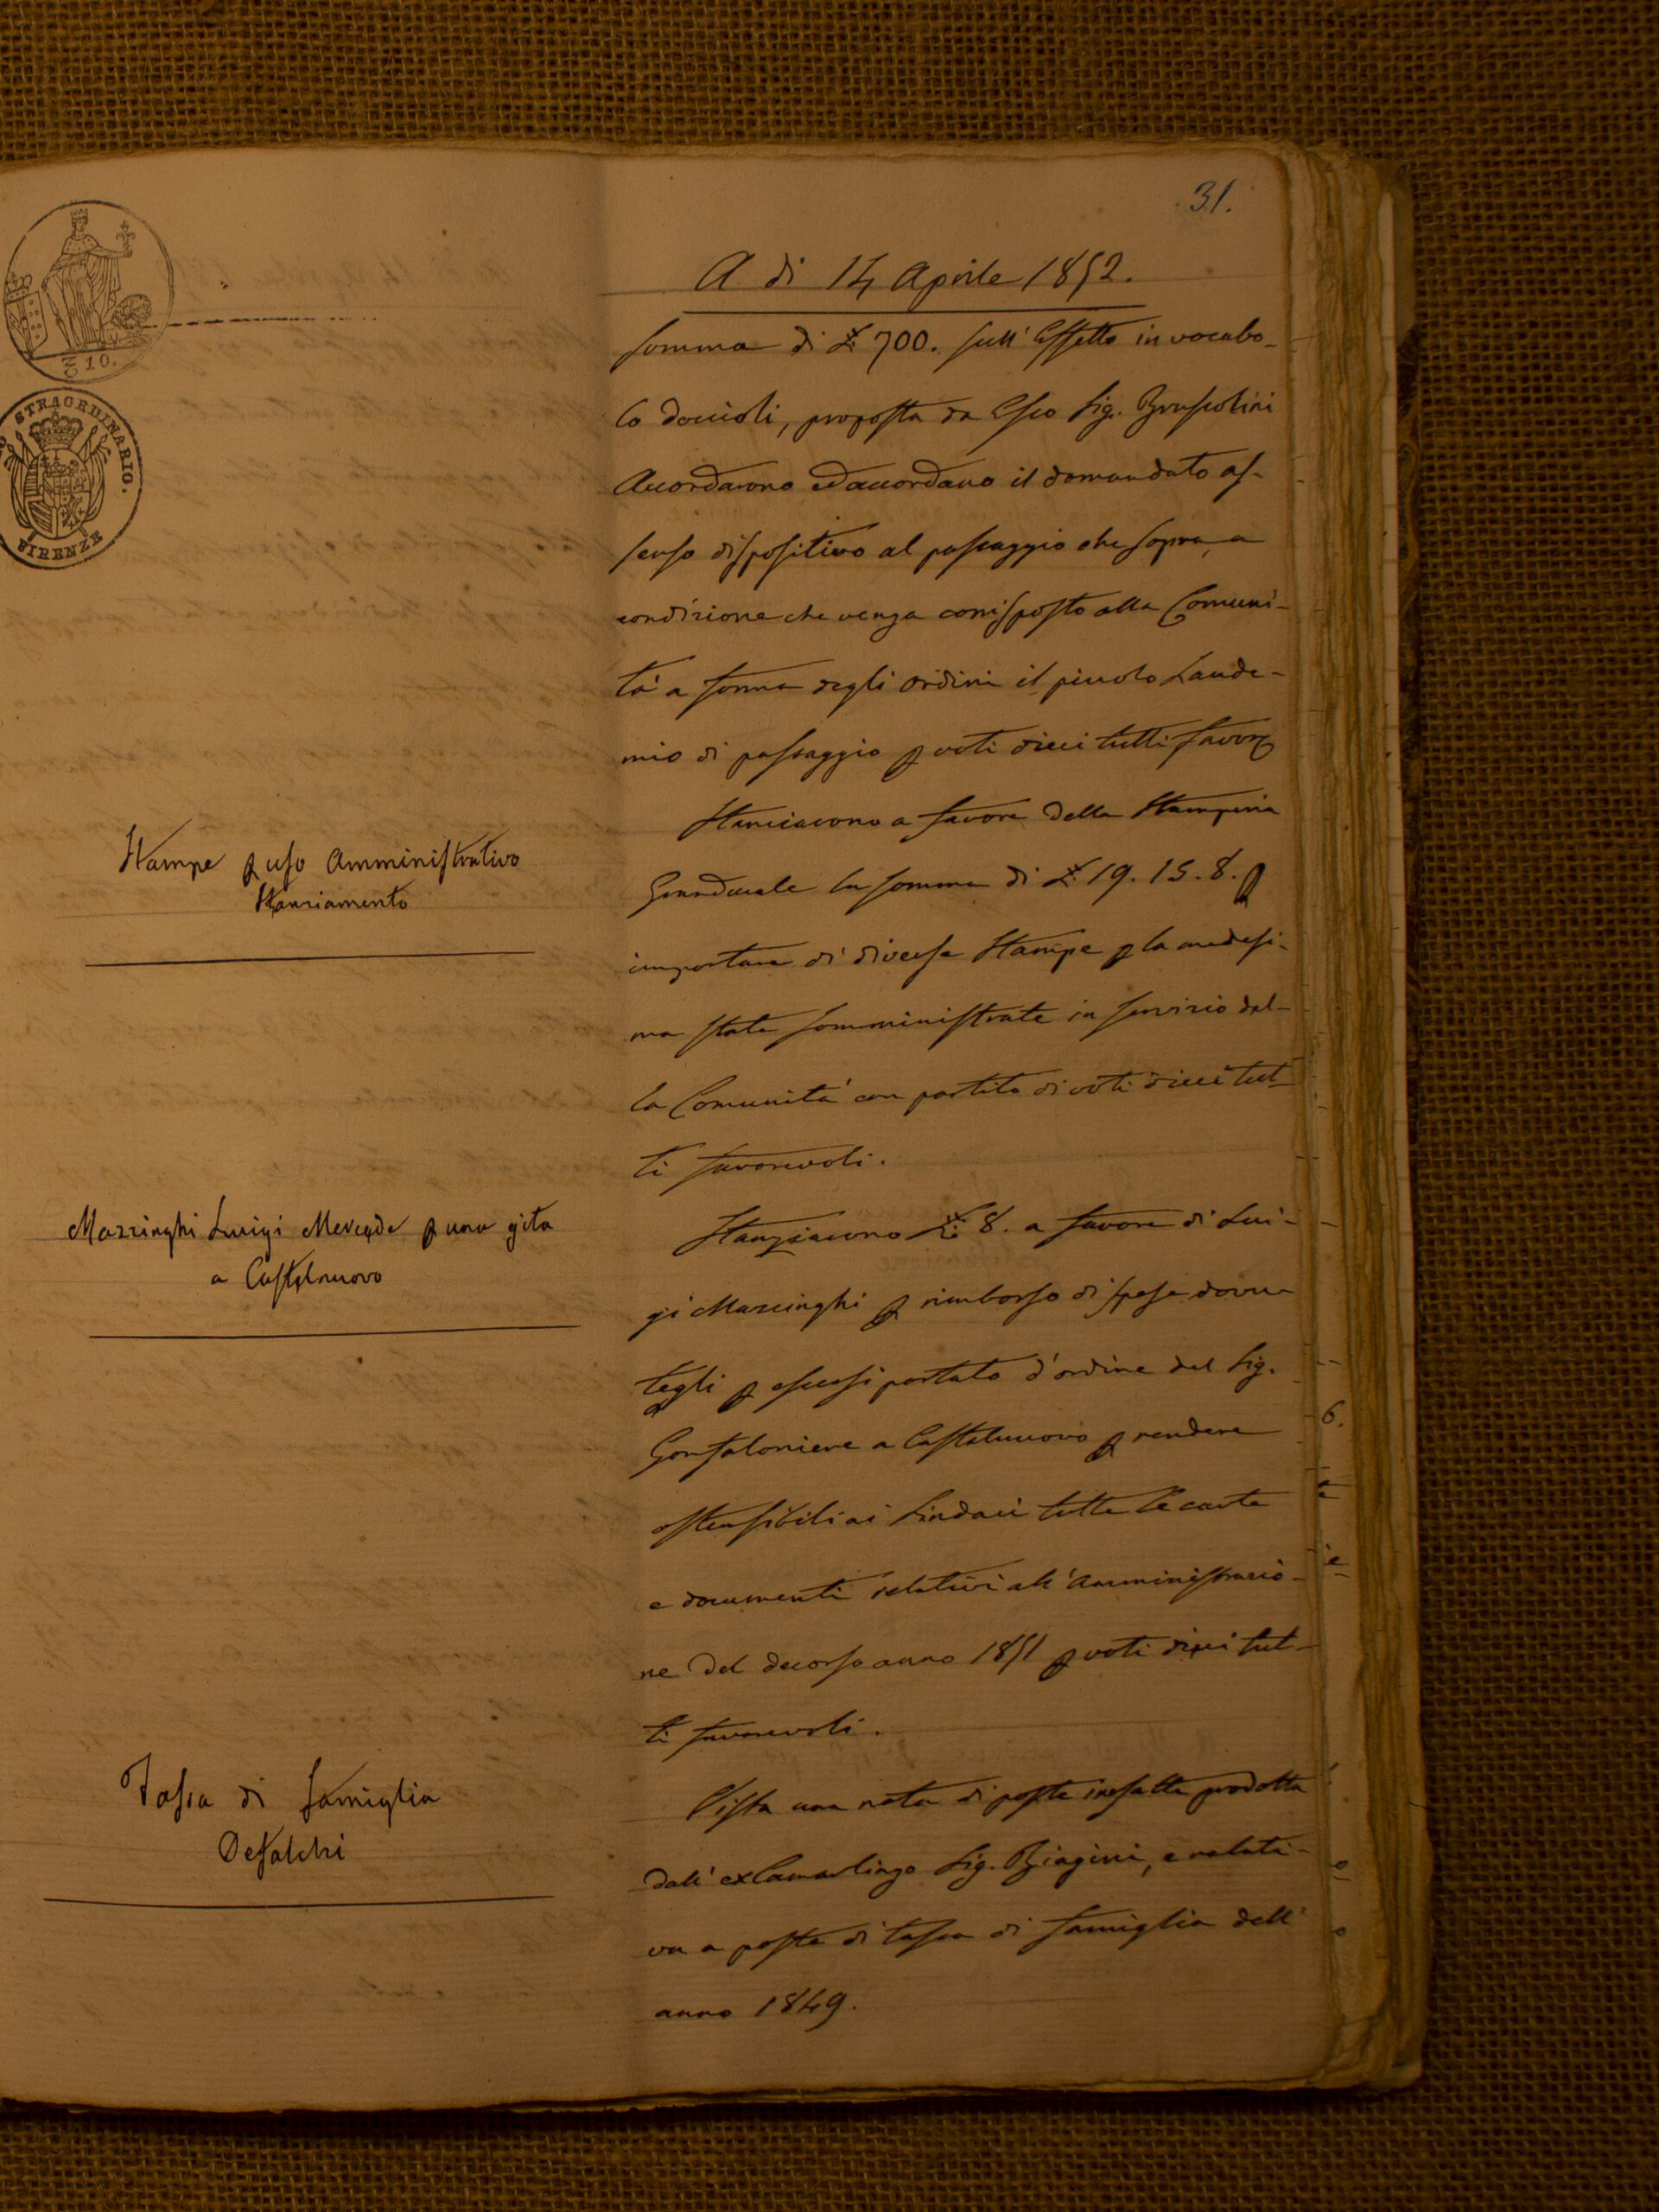 31.
A di 14 Aprile 1852.
somma di £ 700. sull'Effetto in vocabo-
lo doccioli, proposta da Esso Sig. Bruscolini
Accordarono ed accordano il domandato as-
senso dispositivo al passaggio che sopra, a
condizione che venga corrisposto alla Comuni-
tà a forma degli ordini il piccolo Laude-
mio di passaggio p voti dieci tutti favor
Stampe p uso Amministrativo
Stanziamento
Stanziarono a favore della Stamperia
Granducale la somma di £ 19. 15. 8. p
importare di diverse Stampe p la medesi-
ma state somministrate in servizio del-
la Comunità con partito di voti dieci tut-
ti favorevoli.
Mazzinghi Luigi Mercede p una gita
a Castelnuovo
Stanziarono £ 8. a favore di Lui-
gi Mazzinghi p rimborso di spese dovu-
tegli p essersi portato d'ordine del Sig.
Gonfaloniere a Castelnuovo p rendere
ostensibili ai Sindaci tutte le carte
e documenti relativi all'Amministrazio-
ne del decorso anno 1851 p voti dieci tut-
ti favorevoli.
Tassa di famiglia
Defalchi
Vista una nota di poste inesatte prodotta
dall'ex Camarlingo Sig. Biagini, e relati-
va a poste di tassa di famiglia dell'
anno 1849.
C 10.
STRAORDINARIO.
FIRENZE
6.